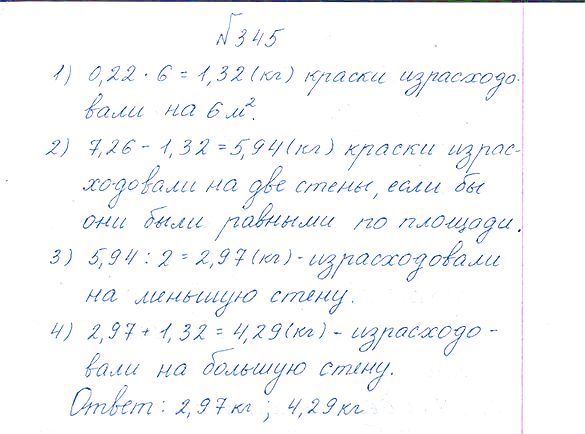 №345
1) 0,22 · 6 = 1,32 (кг) краски израсходо-
вали на 6 м².
2) 7,26 - 1,32 = 5,94 (кг) краски израс-
ходовали на две стены, если бы
они были равными по площади.
3) 5,94 : 2 = 2,97 (кг) - израсходовали
на меньшую стену.
4) 2,97 + 1,32 = 4,29 (кг) - израсходо-
вали на большую стену.
Ответ: 2,97 кг ; 4,29 кг